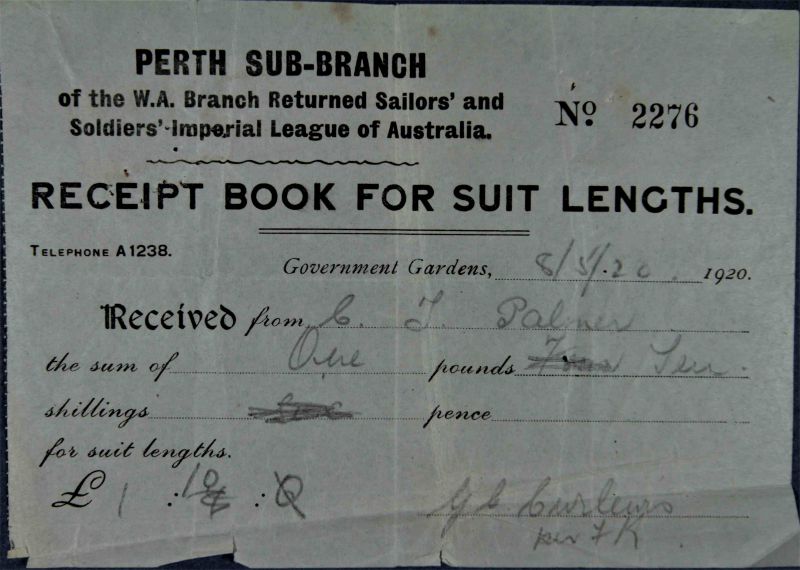 PERTH SUB-BRANCH
of the W.A. Branch Returned Sailors' and
Soldiers' Imperial League of Australia.
No 2276
RECEIPT BOOK FOR SUIT LENGTHS.
TELEPHONE A1238.
Government Gardens, 8/5/20. 1920.
Received from C. J. Palmer
the sum of One pounds Ten.
shillings pence
for suit lengths.
£ 1 : 10 : 0
G C Curlewis
per F K